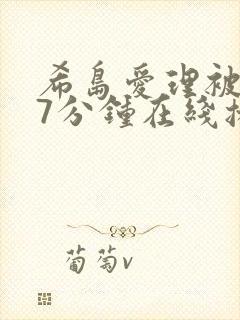 希島愛理被
7分鍾在綫播
葡萄v